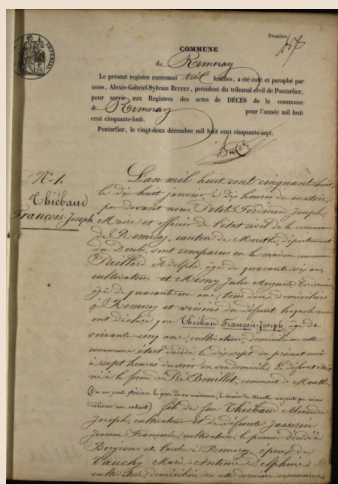 Première
COMMUNE
de Remoray
Le présent registre contenant trois feuilles, a été coté et paraphé par
nous, Alexis-Gabriel-Sylvain président du tribunal civil de Pontarlier,
pour servir aux Registres des actes de DÉCÈS de la commune
de Remoray pour l'année mil huit
cent cinquante-huit.
Pontarlier, le vingt-deux décembre mil huit cent cinquante-sept.
N° 1.
Thiébaud
François-Joseph
L'an mil huit cent cinquante huit,
le dix huit janvier à dix heures du matin,
par devant nous, Petit Ferdinand Joseph,
Maire et officier de l'état civil de la commune
de Remoray, canton de Mouthe, département
du Doubs, sont comparus en la maison commune
Paillard Adolphe, âgé de quarante six ans
cultivateur et Jules Auguste
âgé de quarante un ans, tous deux domiciliés
à Remoray et voisins du défunt, lesquels nous
ont déclaré que Thiébaud François-Joseph âgé de
soixante cinq ans, cultivateur, domicilié en cette
commune, est décédé le dix sept du présent mois
à sept heures du soir en son domicile. Le défunt est
né à la ferme du Pré Bouillet, commune de Mouthe
fils de feu Thiébaud Alexandre
Joseph, cultivateur et de défunte
Jeanne Françoise, cultivatrice, le premier décédé à
et l'autre à Remoray, époux de
Vauchy Marie Antoine Delphine
cultivatrice, domiciliée en cette commune